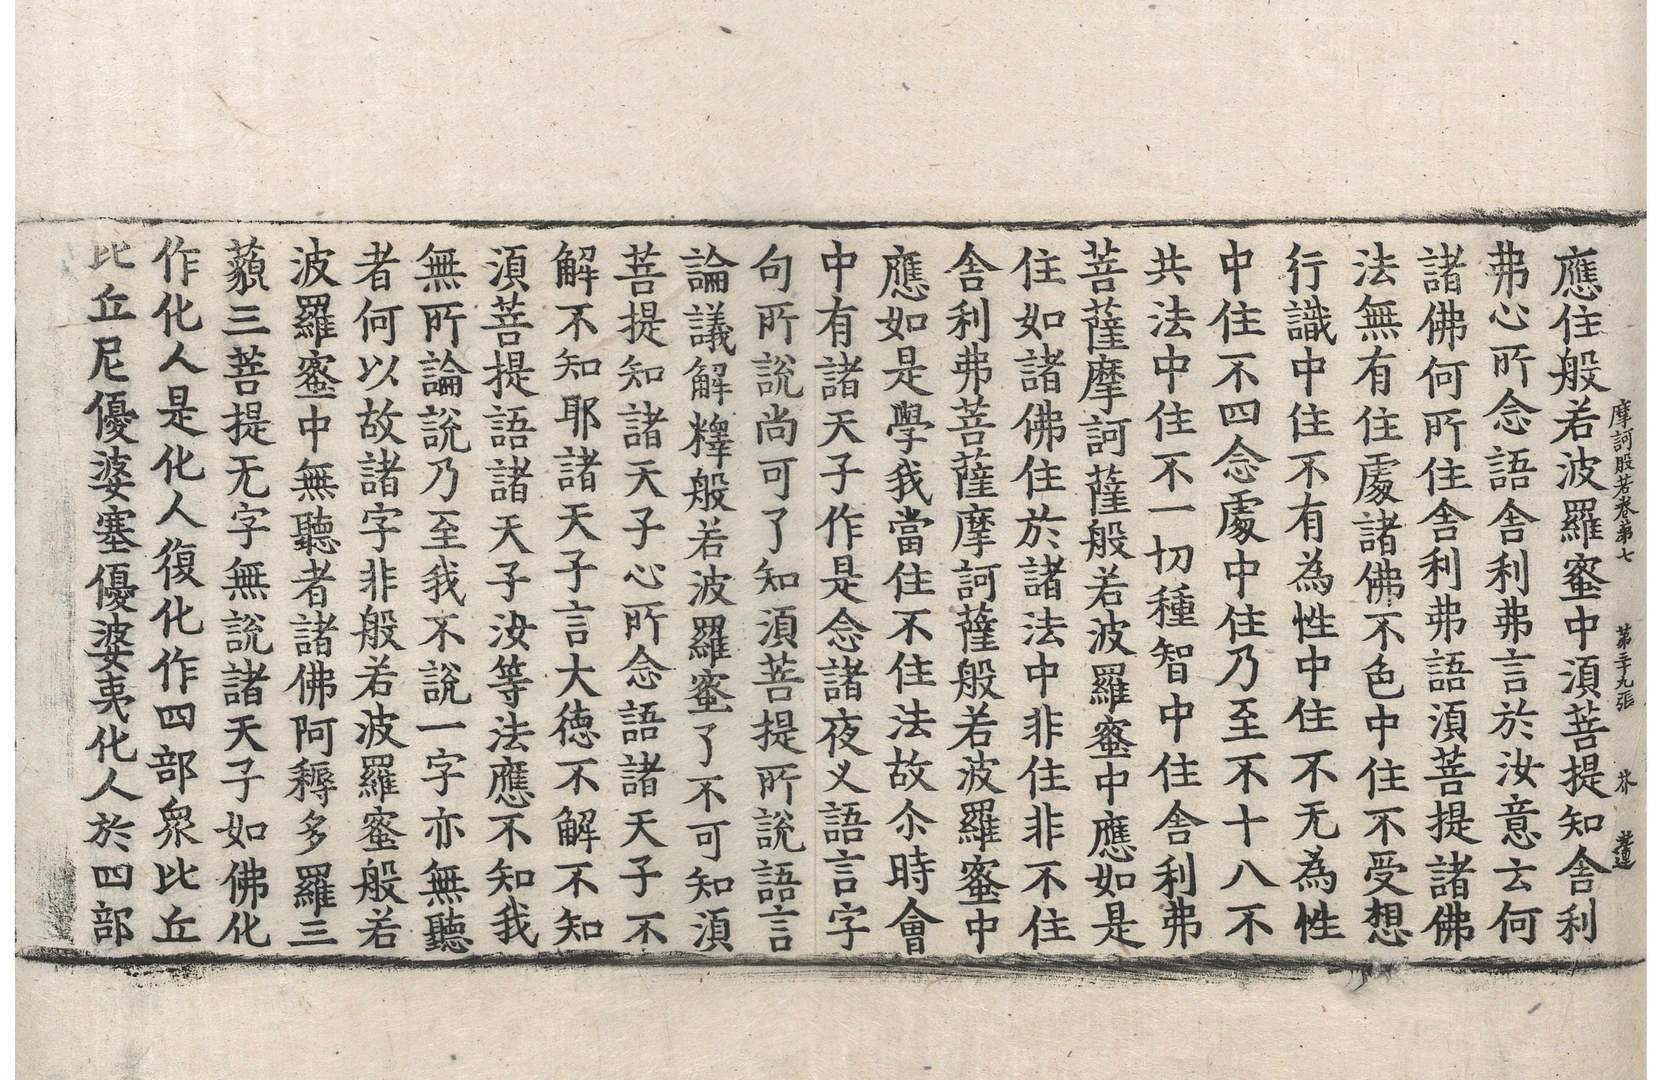 摩訶般若卷第七　第三十九張　芥　孝道
應住般若波羅蜜中須菩提知舍利
弗心所念語舍利弗言於汝意云何
諸佛何所住舍利弗語須菩提諸佛
法無有住處諸佛不色中住不受想
行識中住不有為性中住不无為性
中住不四念處中住乃至不十八不
共法中住不一切種智中住舍利弗
菩薩摩訶薩般若波羅蜜中應如是
住如諸佛住於諸法中非住非不住
舍利弗菩薩摩訶薩般若波羅蜜中
應如是學我當住不住法故尒時會
中有諸天子作是念諸夜叉語言字
句所說尚可了知須菩提所說語言
論議解釋般若波羅蜜了不可知須
菩提知諸天子心所念語諸天子不
解不知耶諸天子言大德不解不知
須菩提語諸天子汝等法應不知我
無所論說乃至我不說一字亦無聽
者何以故諸字非般若波羅蜜般若
波羅蜜中無聽者諸佛阿耨多羅三
藐三菩提无字無說諸天子如佛化
作化人是化人復化作四部衆比丘
比丘尼優婆塞優婆夷化人於四部